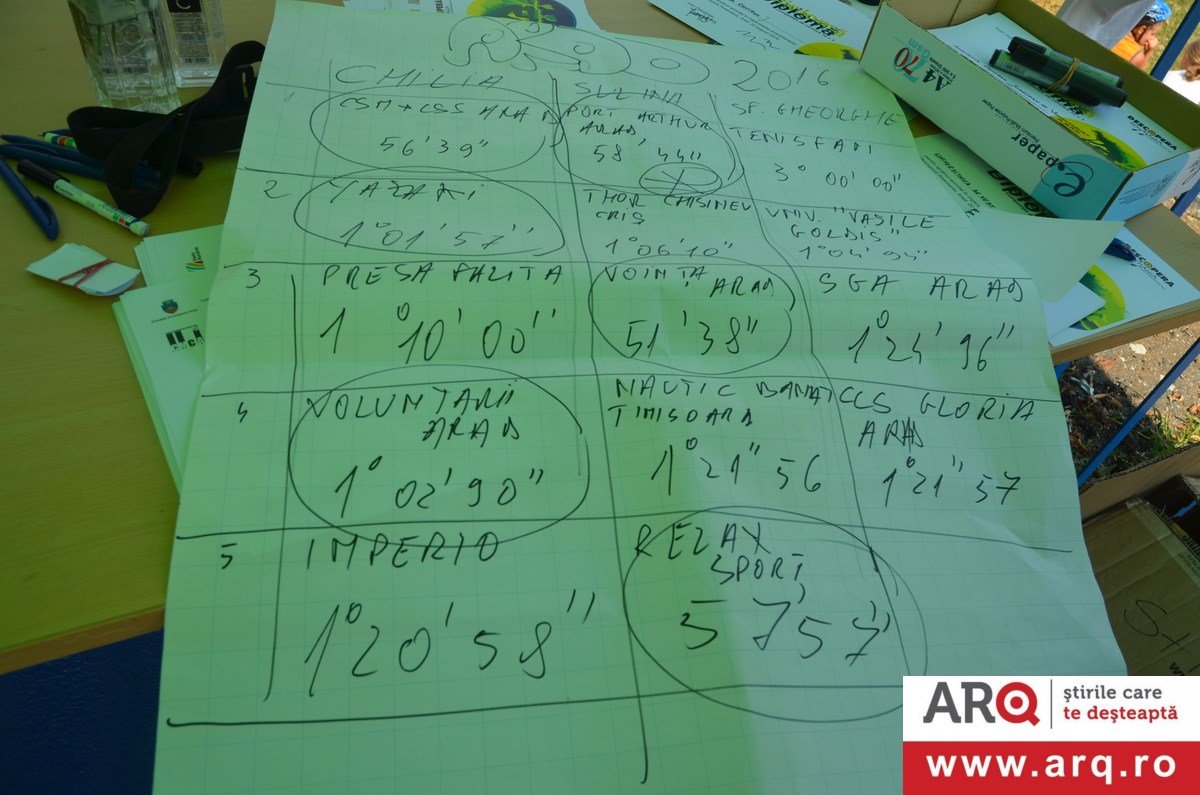 2016
CHILIA SULINA SF. GHEORGHE
1 CSM+CSS ARAD
56'39"
PORT ARTHUR
ARAD
58'44"
TENISFAN
3° 00' 00"
2 YAZAKI
1°01'57"
THOR CHISINEU
CRIȘ
1°06'10"
UNIV. "VASILE
GOLDIS"
1°04'94"
3 PRESA PALITA
1°10'00"
VOINȚA
ARAD
51'38"
SGA ARAD
1°24'96"
4 VOLUNTARII
ARAD
1°02'90"
NAUTIC BANAT
TIMISOARA
1°21"56
CCS GLORIA
ARAD
1°21"57
5 IMPERIO
1°20'58"
RELAX
SPORT
57'57"
A4/70
Gsm
epaper
e.
DESCOPERA
ARQ
știrile care
te deșteaptă
www.arq.ro